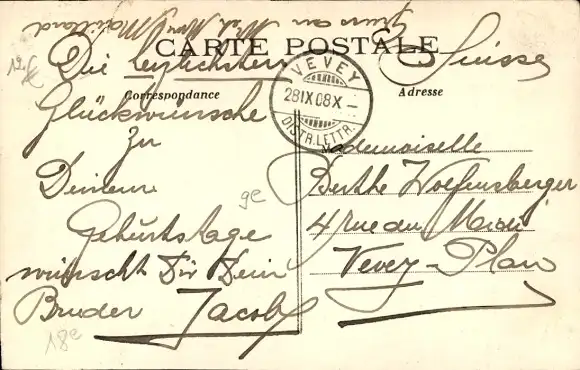 Gruss an
CARTE POSTALE
Suisse
Die herzlichsten
Correspondance
Adresse
Glückwünsche
zu
Deinem
Geburtstage
wünscht Dir Dein
Bruder Jacob
VEVEY
28 IX 08 X –
DISTR. LETTR.
Mademoiselle
Berthe Wolfensberger
4 rue du Midi
Vevey-Plan
ge
18e